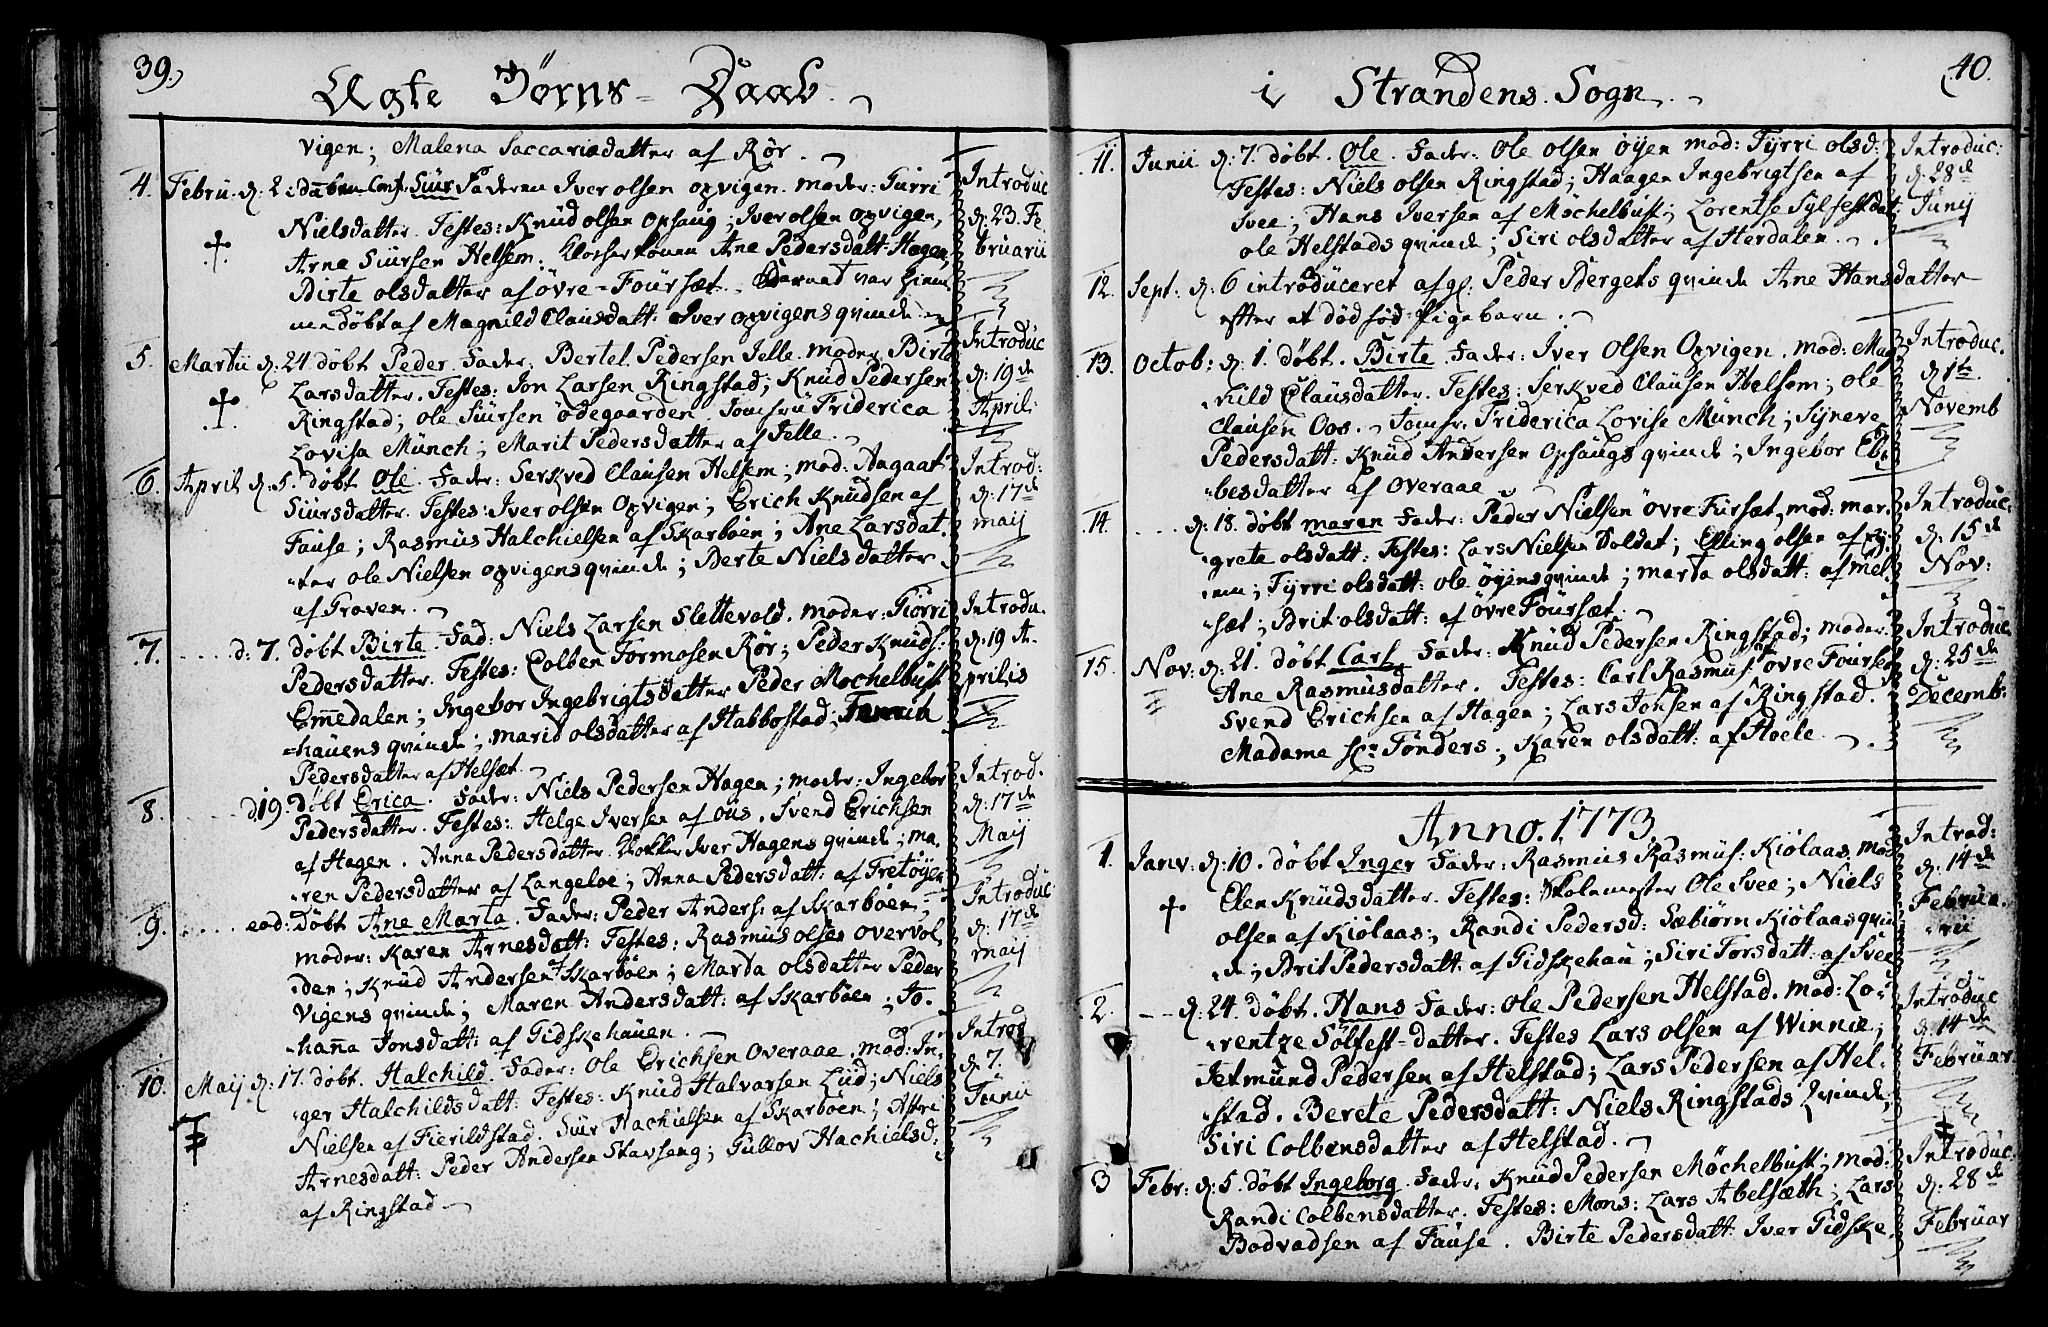 39.)
Ægte Børns-Daab.
vigen; Malena Saccariædatter af Rör.
4. Febru. d: 2: Daaben Conf. Siur Faderen Iver olsen opvigen. moder: Gurri
Nielsdatter. Testes: Knud olsen Opsaug; Iver olsen opvigen,
Arne Siursen Helsem; Klocherkonen Ane Pedersdatt: Hagen,
Birte olsdatter af övre-Foursæt. Barnet var hiem-
me döbt af Magnild Clausdatt: Iver opvigens qvinde.
Introduc
d: 23. Fe
bruarii
5. Martii d: 24. döbt Peder. Fader: Bertel Pedersen Jelle. moder: Birte
Larsdatter. Testes: Jon Larsen Ringstad; Knud Pedersen
Ringstad; ole Siursen ödegaarden. Jomfru Friderica
Lovisa Münch; Marit Pedersdatter af Jelle.
Introduc
d: 19de
April:
6. April d: 5. döbt Ole. Fader: Serkved Clausen Helsem; mod: Aagaat
Siursdatter. Testes: Iver olsen Opvigen; Erich Knudsen af
Fause; Rasmus Halchielsen af Skarböen; Ane Larsdat-
ter ole Nielsen opvigens qvinde; Berte Nielsdatter
af Groven.
Introd:
d: 17de
maij
7. ..... d: 7. döbt Birte. Fad: Niels Larsen Slettevold. moder: Giörri
Pedersdatter. Testes: Colben Tormosen Rör; Peder Knuds:
Emmedalen; Ingebor Ingebrigtsdatter Peder Mochelbust
hauens qvinde; marid olsdatter af Habbostad;
Pedersdatter af Helsæt.
Introdu.
d: 19 A-
prilis
8. ..... d. 19. döbt Erica. Fader: Niels Pedersen Hagen; moder: Ingebor
Pedersdatter. Testes: Helge Iversen af Ous. Svend Erichsen
af Hagen. Anna Pedersdatter Klokker Iver Hagens qvinde; ma-
ren Pedersdatter af Langeloe; Anna Pedersdatt: af Fretöyen
Introd.
d: 17de
Maij
9. ..... eod: Döbt Ane Marta. Fader: Peder Anders: af Skarböen;
moder: Karen Arnesdatt: Testes: Rasmus olsen overvol-
den; Knud Andersen Skarböen; Marta olsdatter Peder
Vigens qvinde; Maren Andersdatt: af Skarböen; Jo-
hanna Jonsdatt: af Gidskehauen.
Introduc
d: 17de
maij
10. Maij d: 17. döbt. Halchild. Fader: Ole Erichsen Overaae. mod: In-
ger Halchildsdatt: Testes: Knud Halvarsen Lüd; Niels
Nielsen af Fierildstad. Siur Hachielsen af Skarböen; Astri
Arnesdatt: Peder Andersen Stavseng; Gullov Hachielsd:
af Ringstad.
Introd
d: 7.
Junii
40.
i Strandens. Sogn.
11. Junii d: 7. döbt. Ole. Fader: Ole olsen öyen mod: Tyrri olsd:
Testes: Niels olsen Ringstad; Haagen Ingebrigtsen af
Svee; Hans Iversen af Mochelbust; Lorentse Sylfestdat:
ole Helstads qvinde; Siri olsdatter af Herdalen.
Introduc:
d: 28de
Junij
12. Sept: d: 6 introduceret afg. Peder Bergets qvinde Ane Hansdatter
efter et dödfød Pigebarn.
13. Octob: d: 1. döbt. Birte. Fader: Iver Olsen Opvigen. mod: Mag-
hild Clausdatter. Testes: Serkved Clausen Helsem; ole
Clausen Oos. Jomfr. Friderica Lovise Münch; Synneve
Pedersdatt: Knud Andersen Opsaugs qvinde; Ingebor Eb-
besdatter af overaae.
Introduc.
d: 1te
Novemb
14. .... d: 18. döbt maren Fader: Peder Nielsen övre Fursæt, mod: mar-
grete olsdatt: Testes: Lars Nielsen Soldat; Elling olsen af
em; Tyrri olsdatt: ole öyens qvinde; marta olsdatt: af Mel-
sæt; Brit olsdatt: af övre Foursæt.
Introduc:
d: 15de
Nov:
15. Nov: d: 21. döbt Carl. Fader: Knud Pedersen Ringstad; moder:
Ane Rasmusdatter. Testes: Carl Rasmus: övre Foursæt
Svend Erichsen af Hagen; Lars Jonsen af Ringstad.
Madame Sr: Tönders; Karen olsdatt: af Hoele.
Introduc
d: 25de
Decemb:
Anno. 1773.
1. Janv. d: 10. döbt Inger Fader: Rasmus Rasmus: Kiölaas. mod
Elen Knudsdatter. Testes: Skolemester Ole Svee; Niels
olsen af Kiölaas; Randi Pedersd: Sæbiörn Kiölaas qvin-
de; Brit Pedersdatt: af Gidskehau; Siri Torsdatt: af Svee
Introd:
d: 14de
Februa-
rii
2. ---- d: 24. döbt. Hans Fader: Ole Pedersen Helstad. mod: Lo-
rentze Sölfest-datter. Testes Lars olsen af Winnie;
Jetmund Pedersen af Helstad; Lars Pedersen af Hel-
stad. Berete Pedersdatt: Niels Ringstads Qvinde;
Siri Colbensdatter af Helstad.
Introduc
d: 14de
Februar
3 Febr: d: 5. döbt Ingeborg. Fader: Knud Pedersen Möchelbust; mod:
Randi Colbensdatter. Testes: Mons: Lars Abelsæth; Lars
Bodvadsen af Fause. Birte Pedersdatt: Iver Gidske
Introduc.
d: 28de
Februar